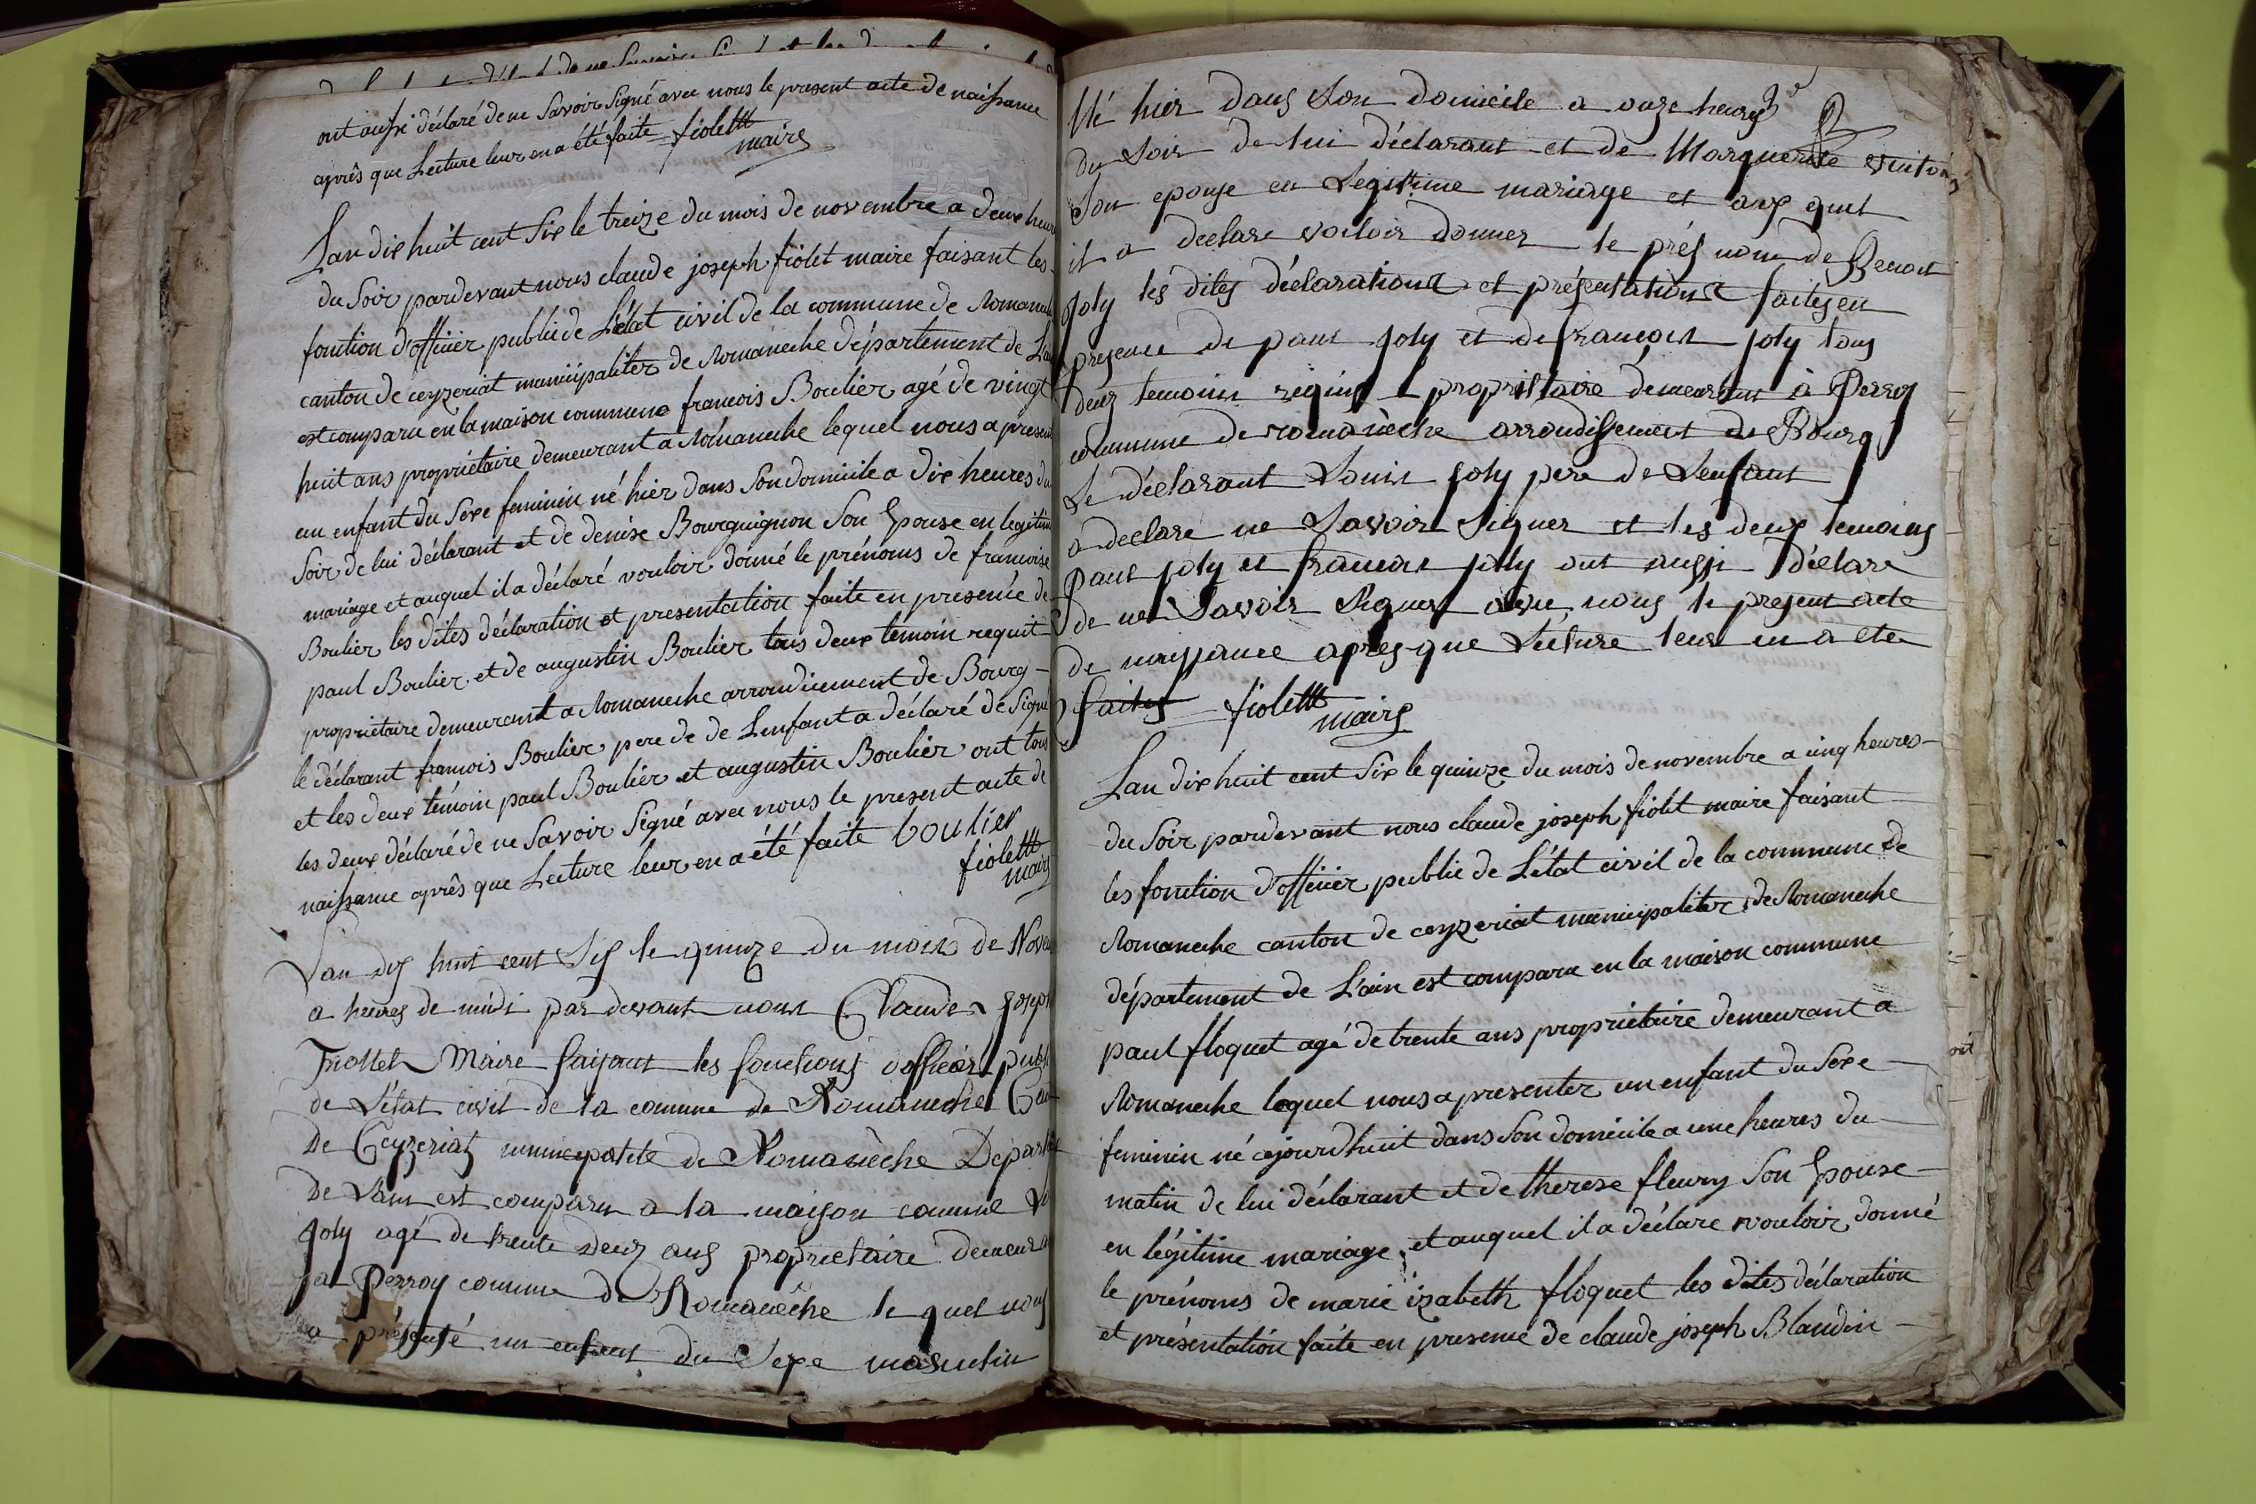 ont aussi déclaré de ne Savoir Signé avec nous le present acte de naissance
après que Lecture leur en a été faite fiolett
maire
Lan dix huit cent Six le treize du mois de novembre a deux heures
du Soir pardevant nous claude joseph fiolet maire faisant les
fonction d'officier public de L'état civil de la commune de Romaneche
canton de ceyzeriat municipaliter de Romaneche département de L'ain
est comparu en la maison commune francois Boulier agé de vingt
huit ans propriétaire demeurant a Romaneche lequel nous a present
un enfant du Sexe feminin né hier dans Son domicile a dix heures du
Soir de lui déclarant et de denise Bourguignon Son Epouse en legitime
mariage et auquel il a déclaré vouloir donné le prénoms de francoise
Boulier les dites déclaration et presentation faite en presence de
paul Boulier et de augustin Boulier tous deux témoin requit
propriétaire demeurant a Romaneche arrondicement de Bourg
le déclarant francois Boulier pere de de Lenfant a déclaré de Signé
et les deux témoin paul Boulier et augustin Boulier ont tous
les deux déclaré de ne Savoir Signé avec nous le present acte de
naissance après que Lecture leur en a été faite boulier
fiolett
maire
Lan dix huit cent Six le quinze du mois de Nove
a heures de midi par devant nous Claude Joseph
Fiollet Maire faisant les fonctions dofficier publ
de L'état civil de la comune de Romaneche Can
de Ceyzeriat municipalité de Romanèche Départ
de Lain est comparu a la maison comune Lo
Joly agé de trente deux ans propriétaire demeura
a Perroy comune de Romanèche le quel nous
a présenté un enfant du Sexe masculin
Né hier dans Son domicile a onze heures
du Soir de lui déclarant et de Marguerite
Son epouse en Legitime mariage et auquel
il a declare vouloir donner le prés nom de Benoit
Joly les dites déclarations et présentations faites en
presence de paul Joly et de francois Joly tous
deux temoins requis propriétaire demeurant à Perroy
commune de romanèche arrondissement de Bourg
Le déclarant Louis Joly pere de Lenfant
a declaré ne Savoir Signer et les deux temoins
Paul Joly et francois Joly ont aussi déclare
de ne Savoir Signer avec nous le present acte
de naissance apres que Lecture leur en a été
faites fiolett
maire
Lan dix huit cent Six le quinze du mois de novembre a cinq heures
du Soir pardevant nous claude joseph fiolet maire faisant
les fonction d'officier public de L'état civil de la commune de
Romaneche canton de ceyzeriat municipaliter de Romaneche
département de L'ain est comparu en la maison commune
paul floquet agé de trente ans propriétaire demeurant a
Romaneche lequel nous a presenter un enfant du Sexe
feminin né cejourdhuit dans Son domicile a une heures du
matin de lui déclarant et de therese fleury Son Epouse
en légitime mariage et auquel il a déclare vouloir donné
le prénoms de marie izabeth floquet les dites déclaration
et présentation faite en presence de claude joseph Blandin